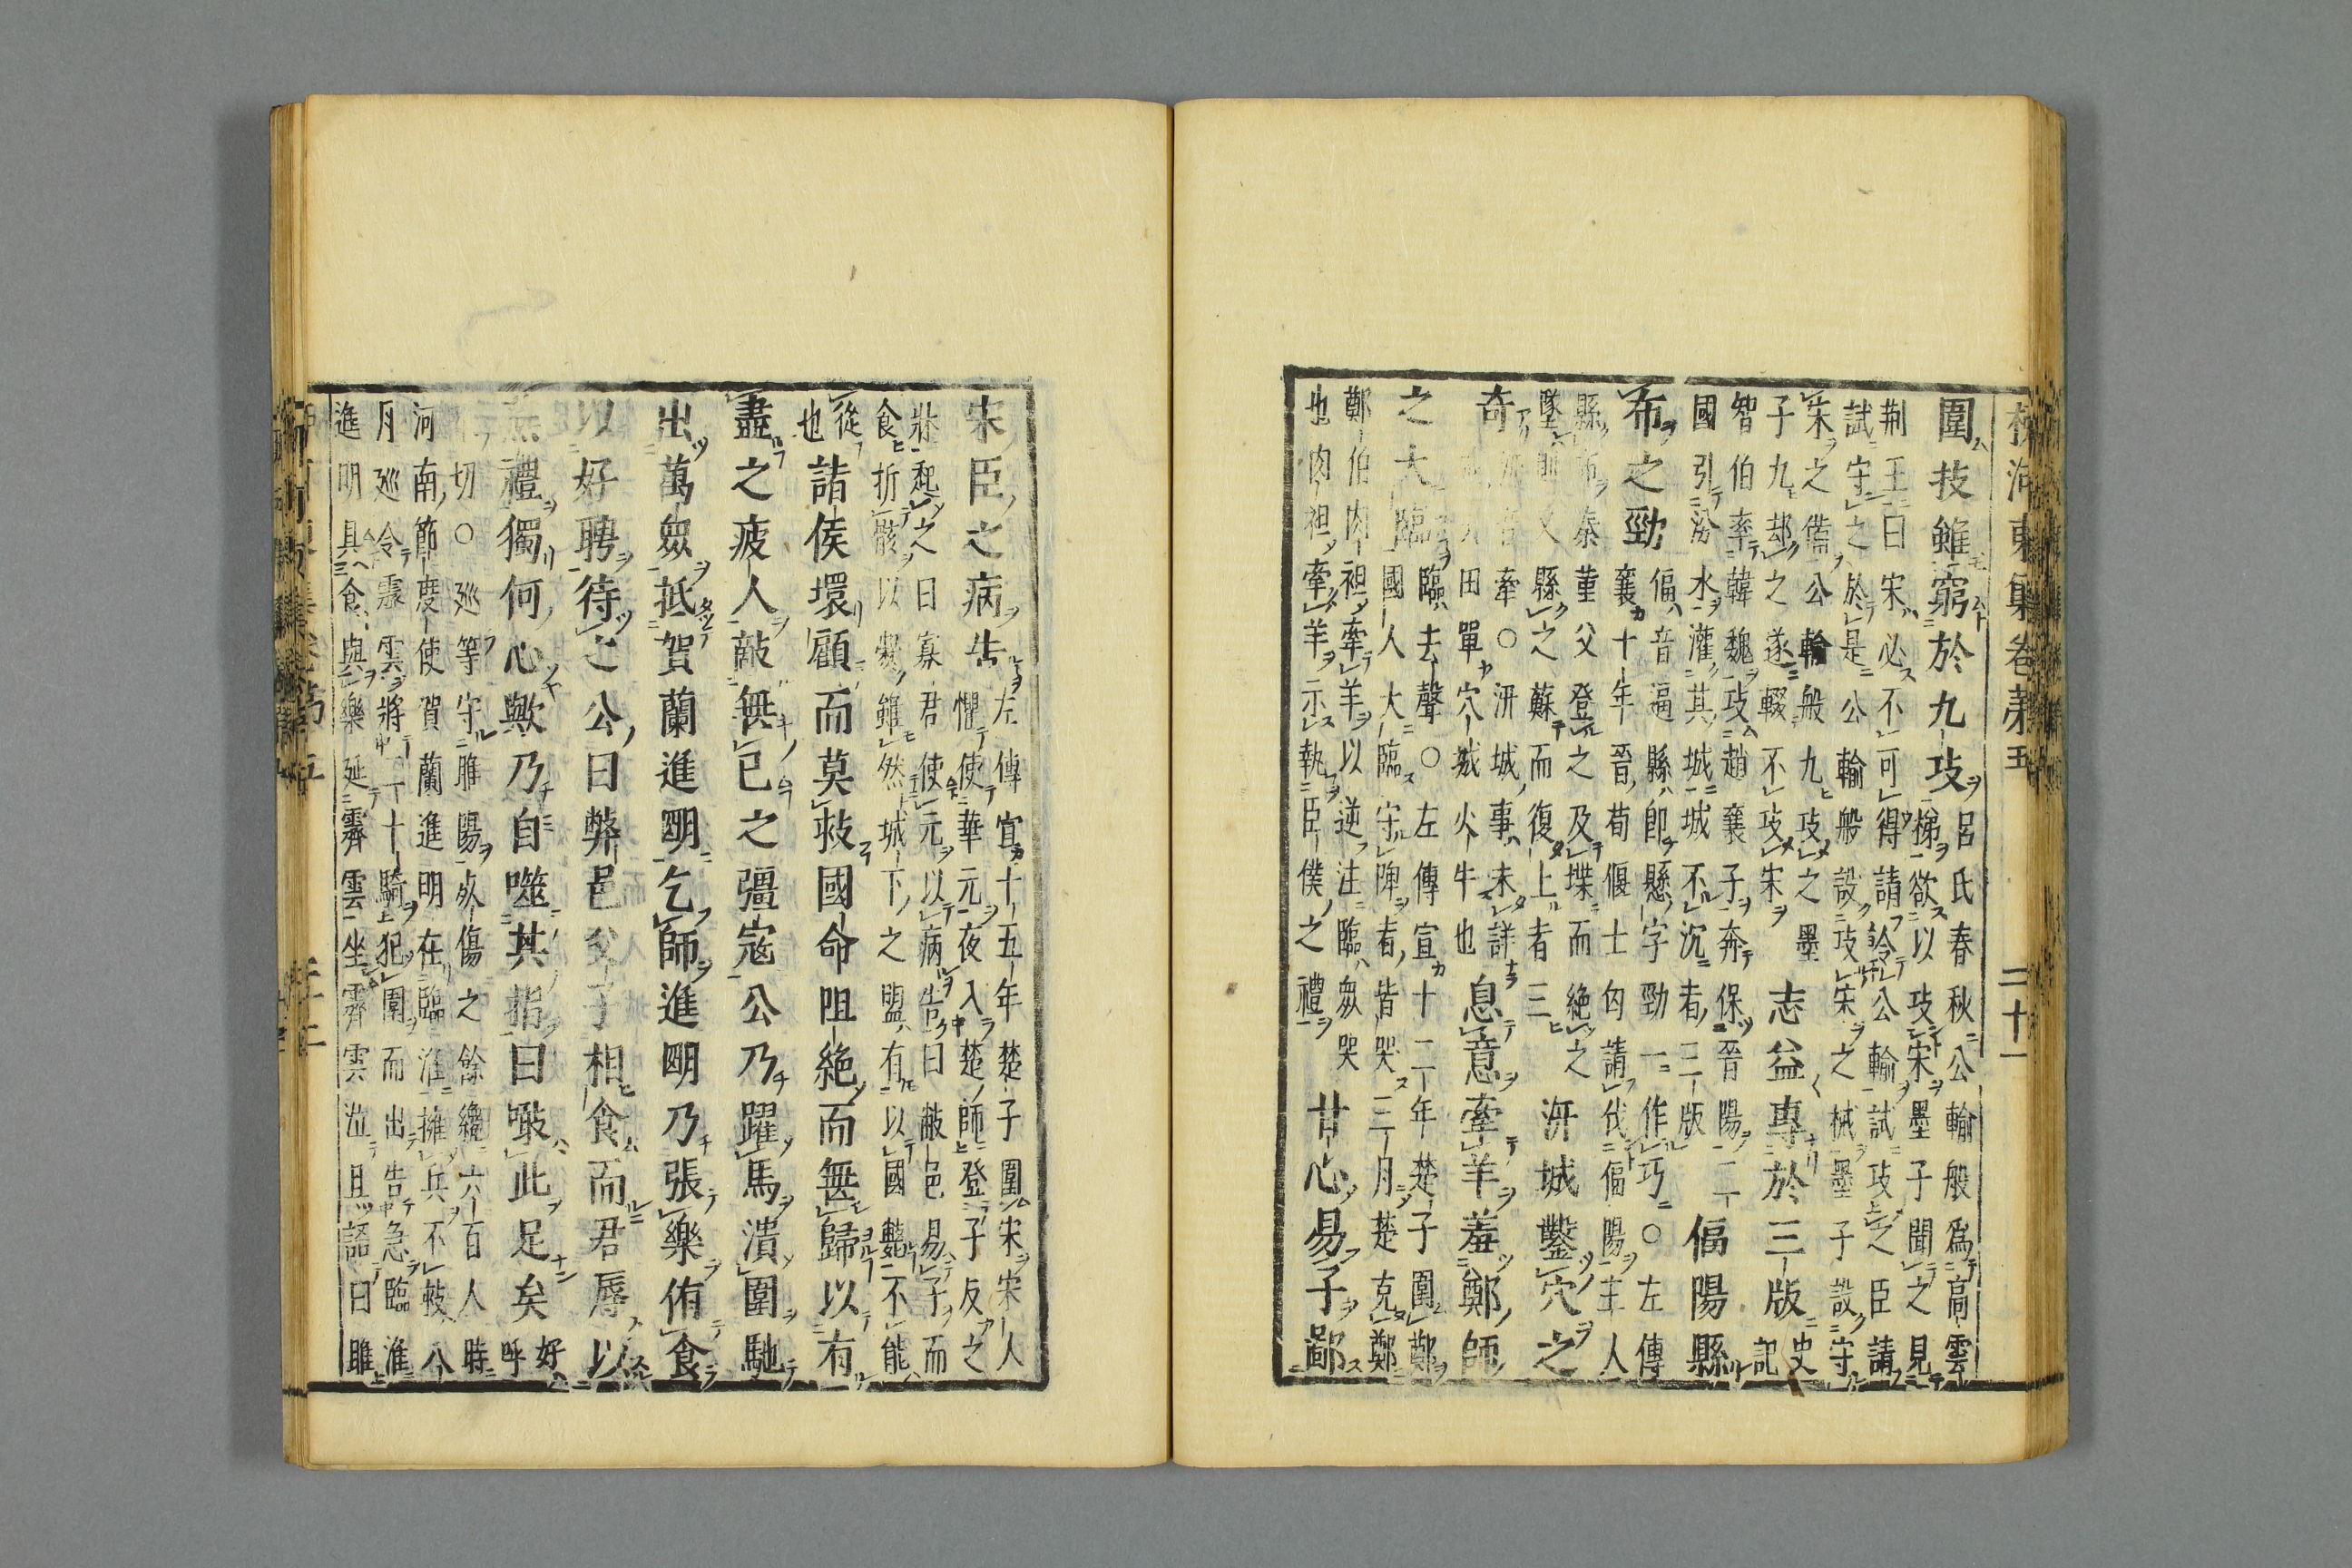 圍技雖窮於九攻
呂氏春秋公輸般爲高雲
梯欲以攻宋墨子聞之見
荆王曰宋必不可得請令公輸試攻之臣請
試守之於是公輸般設攻宋之械墨子設守
宋之備公輸般九攻之墨
子九却之遂輟不攻宋
志益專於三版
史
記
智伯率韓魏攻趙襄子奔保晉陽三
國引汾水灌其城城不沉者三版
偪陽縣
布之勁
偪音逼縣即懸字勁一作巧○左傳
襄十年晉荀偃士匄請伐偪陽主人
縣布秦堇父登之及堞而絕之
墜則又縣之蘇而復上者三
汧城鑿穴之
奇
牽○汧城事未詳
田單穴城火牛也
息意牽羊羞鄭師
之大臨
臨去聲○左傳宣十二年楚子圍鄭
國人大臨守陴者皆哭三月楚克鄭
鄭伯肉袒牽羊以逆注臨衆哭
也肉袒牽羊示執臣僕之禮
甘心易子鄙
宋臣之病告
左傳宣十五年楚子圍宋宋人
懼使華元夜入楚師登子反之
牀起之曰寡君使元以病告曰敝邑易子而
食折骸以爨雖然城下之盟有以國斃不能
從
也
諸侯環顧而莫救國命阻絶而無歸以有
盡之疲人敵無已之彊寇公乃躍馬潰圍馳
出萬衆抵賀蘭進明乞師進明乃張樂侑食
以好聘待之公曰弊邑父子相食而君辱以
燕禮獨何心歟乃自噬其指曰噉此足矣
好
呼
切○廵等守睢陽殺傷之餘纔六百人時
河南節度使賀蘭進明在臨淮擁兵不救八
月廵令霽雲將二十騎犯圍而出告急臨淮
進明具食與樂延霽雲坐霽雲泣且語曰雎